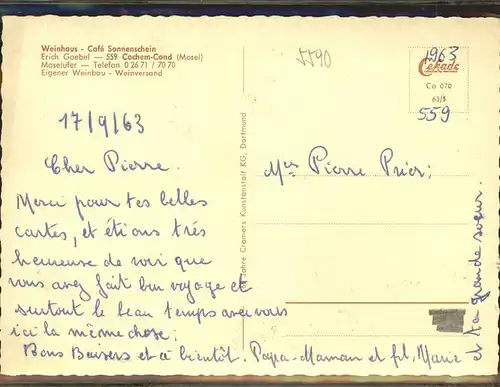 Weinhaus - Café Sonnenschein
Erich Goebel — 559 Cochem-Cond (Mosel)
Moselufer — Telefon 0 26 71 / 70 70
Eigener Weinbau - Weinversand
5590
1963
Cekade
Co 076
63/5
559
17/9/63
Cher Pierre.
Merci pour tes belles
cartes, et étions très
heureuse de voir que
vous avez fait bon voyage et
surtout le beau temps avec vous
ici la même chose;
Bons Baisers et à bientôt. Papa-Maman et fl. Marie
et ta grande soeur.
Jahre Cramers Kunstanstalt KG, Dortmund
Pierre Prier;